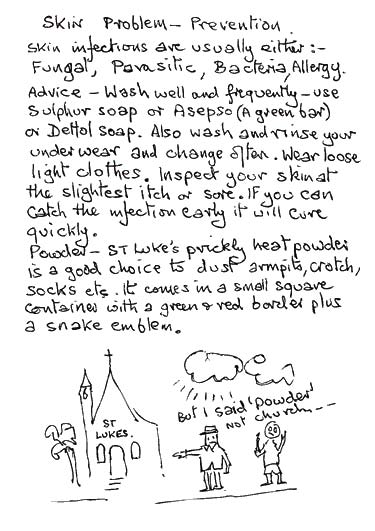 Skin Problem - Prevention.
Skin infections are usually either :-
Fungal, Parasitic, Bacteria, Allergy.
Advice - Wash well and frequently - use
Sulphur soap or Asepso (A green bar)
or Dettol soap. Also wash and rinse your
underwear and change often. Wear loose
light clothes. Inspect your skin at
the slightest itch or sore. If you can
Catch the infection early it will cure
quickly.
Powder - ST Luke's prickly heat powder
is a good choice to dust armpits, crotch,
socks etc. It comes in a small square
container with a green & red border plus
a snake emblem.
But I said 'powder'
not church - - -
ST
LUKES.